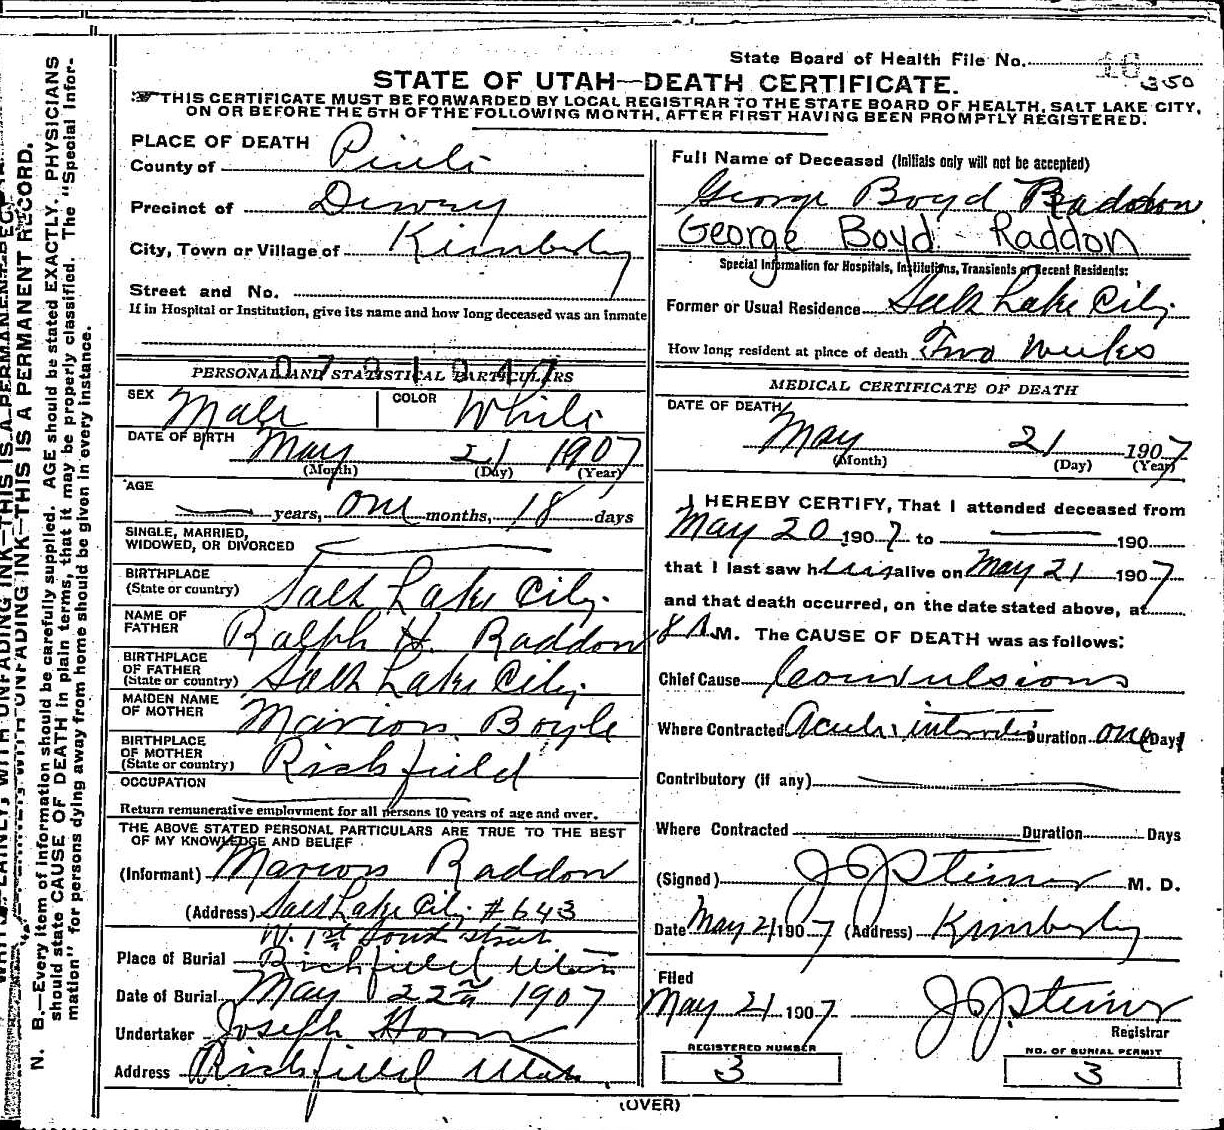 State Board of Health File No. 16
350
STATE OF UTAH—DEATH CERTIFICATE.
THIS CERTIFICATE MUST BE FORWARDED BY LOCAL REGISTRAR TO THE STATE BOARD OF HEALTH, SALT LAKE CITY,
ON OR BEFORE THE 5TH OF THE FOLLOWING MONTH, AFTER FIRST HAVING BEEN PROMPTLY REGISTERED.
PLACE OF DEATH
County of Piute
Precinct of Dewey
City, Town or Village of Kimberly
Street and No.
If in Hospital or Institution, give its name and how long deceased was an inmate
PERSONAL AND STATISTICAL PARTICULARS
SEX Male COLOR White
DATE OF BIRTH May 21 1907
(Month) (Day) (Year)
AGE
years, one months, 18 days
SINGLE, MARRIED,
WIDOWED, OR DIVORCED
BIRTHPLACE
(State or country) Salt Lake City.
NAME OF
FATHER Ralph H. Raddon
BIRTHPLACE
OF FATHER
(State or country) Salt Lake City.
MAIDEN NAME
OF MOTHER Marion Boyle
BIRTHPLACE
OF MOTHER
(State or country) Richfield
OCCUPATION
Return remunerative employment for all persons 10 years of age and over.
THE ABOVE STATED PERSONAL PARTICULARS ARE TRUE TO THE BEST
OF MY KNOWLEDGE AND BELIEF
(Informant) Marion Raddon
(Address) Salt Lake City # 643
W. 1st South street
Place of Burial Richfield Utah
Date of Burial May 22nd 1907
Undertaker Joseph Horn
Address Richfield Utah.
Full Name of Deceased (Initials only will not be accepted)
George Boyd Raddon
George Boyd Raddon
Special Information for Hospitals, Institutions, Transients or Recent Residents:
Former or Usual Residence Salt Lake City
How long resident at place of death Two Weeks
MEDICAL CERTIFICATE OF DEATH
DATE OF DEATH
May 21 1907
(Month) (Day) (Year)
I HEREBY CERTIFY, That I attended deceased from
May 20 1907 to 190
that I last saw him alive on May 21 1907
and that death occurred, on the date stated above, at
8 A.M. The CAUSE OF DEATH was as follows:
Chief Cause Convulsions
Where Contracted Acute Duration one Days
Contributory (if any)
Where Contracted Duration Days
(Signed) J J Steiner M. D.
Date May 21 1907 (Address) Kimberly
Filed
May 21 1907 J J Steiner
Registrar
REGISTERED NUMBER
3
NO. OF BURIAL PERMIT
3
(OVER)
N. B.—Every item of information should be carefully supplied. AGE should be stated EXACTLY. PHYSICIANS
should state CAUSE OF DEATH in plain terms, that it may be properly classified. The "Special Infor-
mation" for persons dying away from home should be given in every instance.
WRITE PLAINLY, WITH UNFADING INK—THIS IS A PERMANENT RECORD.